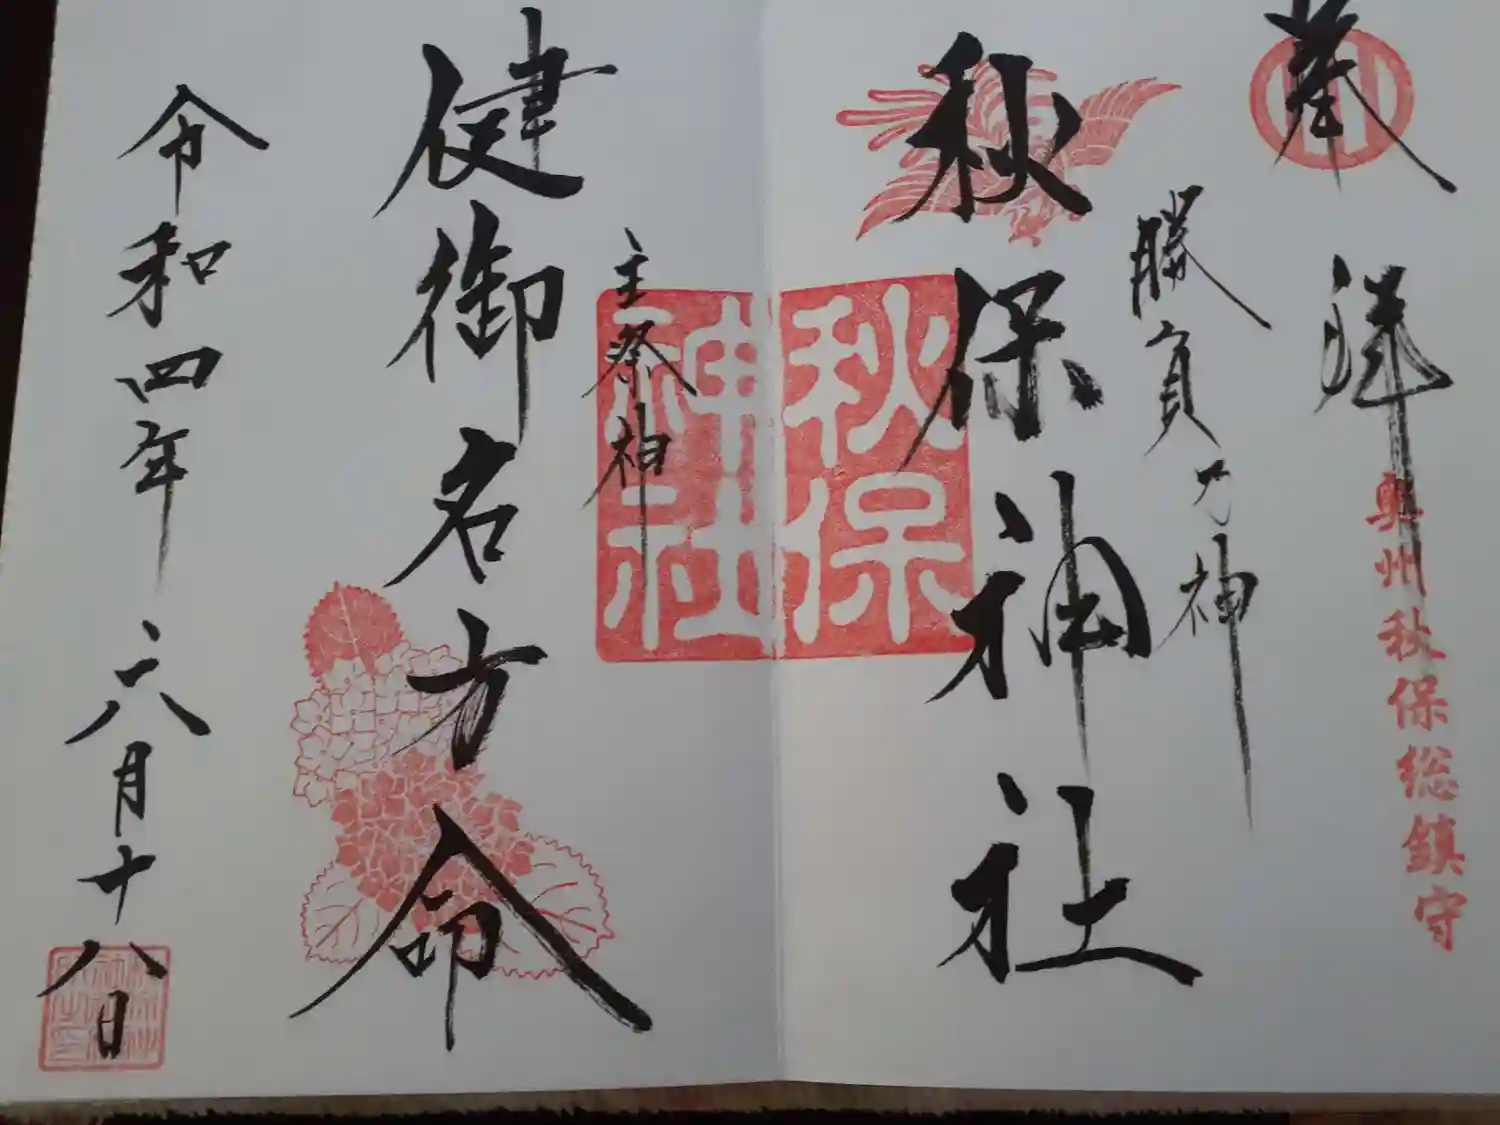 奉拝
奥州秋保総鎮守
勝負の神
秋保神社
秋保
神社
主祭神
健御名方命
令和四年六月十八日